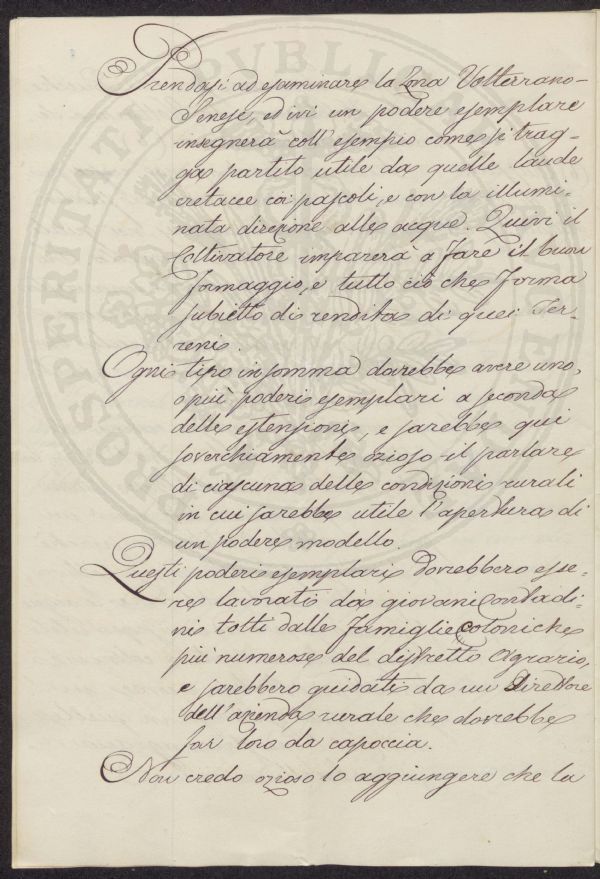 Prendasi ad esaminare la Zona Volterrano-
Senese, ed ivi un podere esemplare
insegnerà coll' esempio come si trag-
ga partito utile da quelle lande
cretacee coi pascoli, e con la illumi-
nata direzione alle acque. Quivi il
Coltivatore imparerà a fare il buon
formaggio, e tutto ciò che forma
subietto di rendita di quei Ter-
reni.
Ogni tipo in somma dovrebbe avere uno,
o più poderi esemplari a seconda
delle estensioni, e sarebbe qui
soverchiamente ozioso il parlare
di ciascuna delle condizioni rurali
in cui sarebbe utile l'apertura di
un podere modello.
Questi poderi esemplari dovrebbero esse-
re lavorati da giovani Contadi-
ni tolti dalle famiglie Coloniche
più numerose del distretto Agrario,
e sarebbero guidati da un Direttore
dell'azienda rurale che dovrebbe
far loro da capoccia.
Non credo ozioso lo aggiungere che la
PROSPERITATI PUBLI